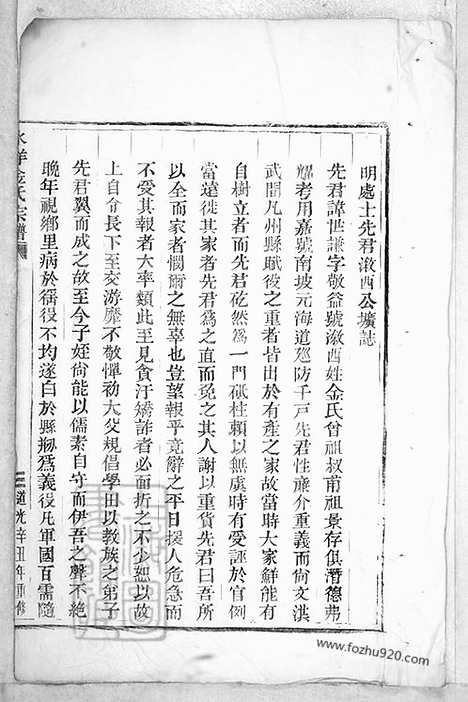 明處士先君激西公壙誌
先君諱世謙字敬益號激西姓金氏曾祖叔甫祖景存俱潛德弗
燿考用嘉號南坡元海道廵防千戸先君性廉介重義而尙文淇
武間凡州縣賦役之重者皆出於有產之家故當時大家鮮能有
自樹立者而先君矻然爲一門砥柱賴以無虞時有受誣於官例
當遠徙其家者先君爲之直而免之其人謝以重貨先君曰吾所
以全而家者憫爾之無辜也豈望報乎竟辭之平日援人危急而
不受其報者大率類此至見貪汙矯詐者必面折之不少恕以故
上自官長下至交游靡不敬憚初大父規倡學田以教族之弟子
先君翼而成之故至今子姪尙能以儒素自守而伊吾之聲不絶
晚年視鄉里病於徭役不均遂白於縣剏爲義役凡軍國百需隨
洋金氏宗譜
道光辛丑年重修
www.fozhu920.com